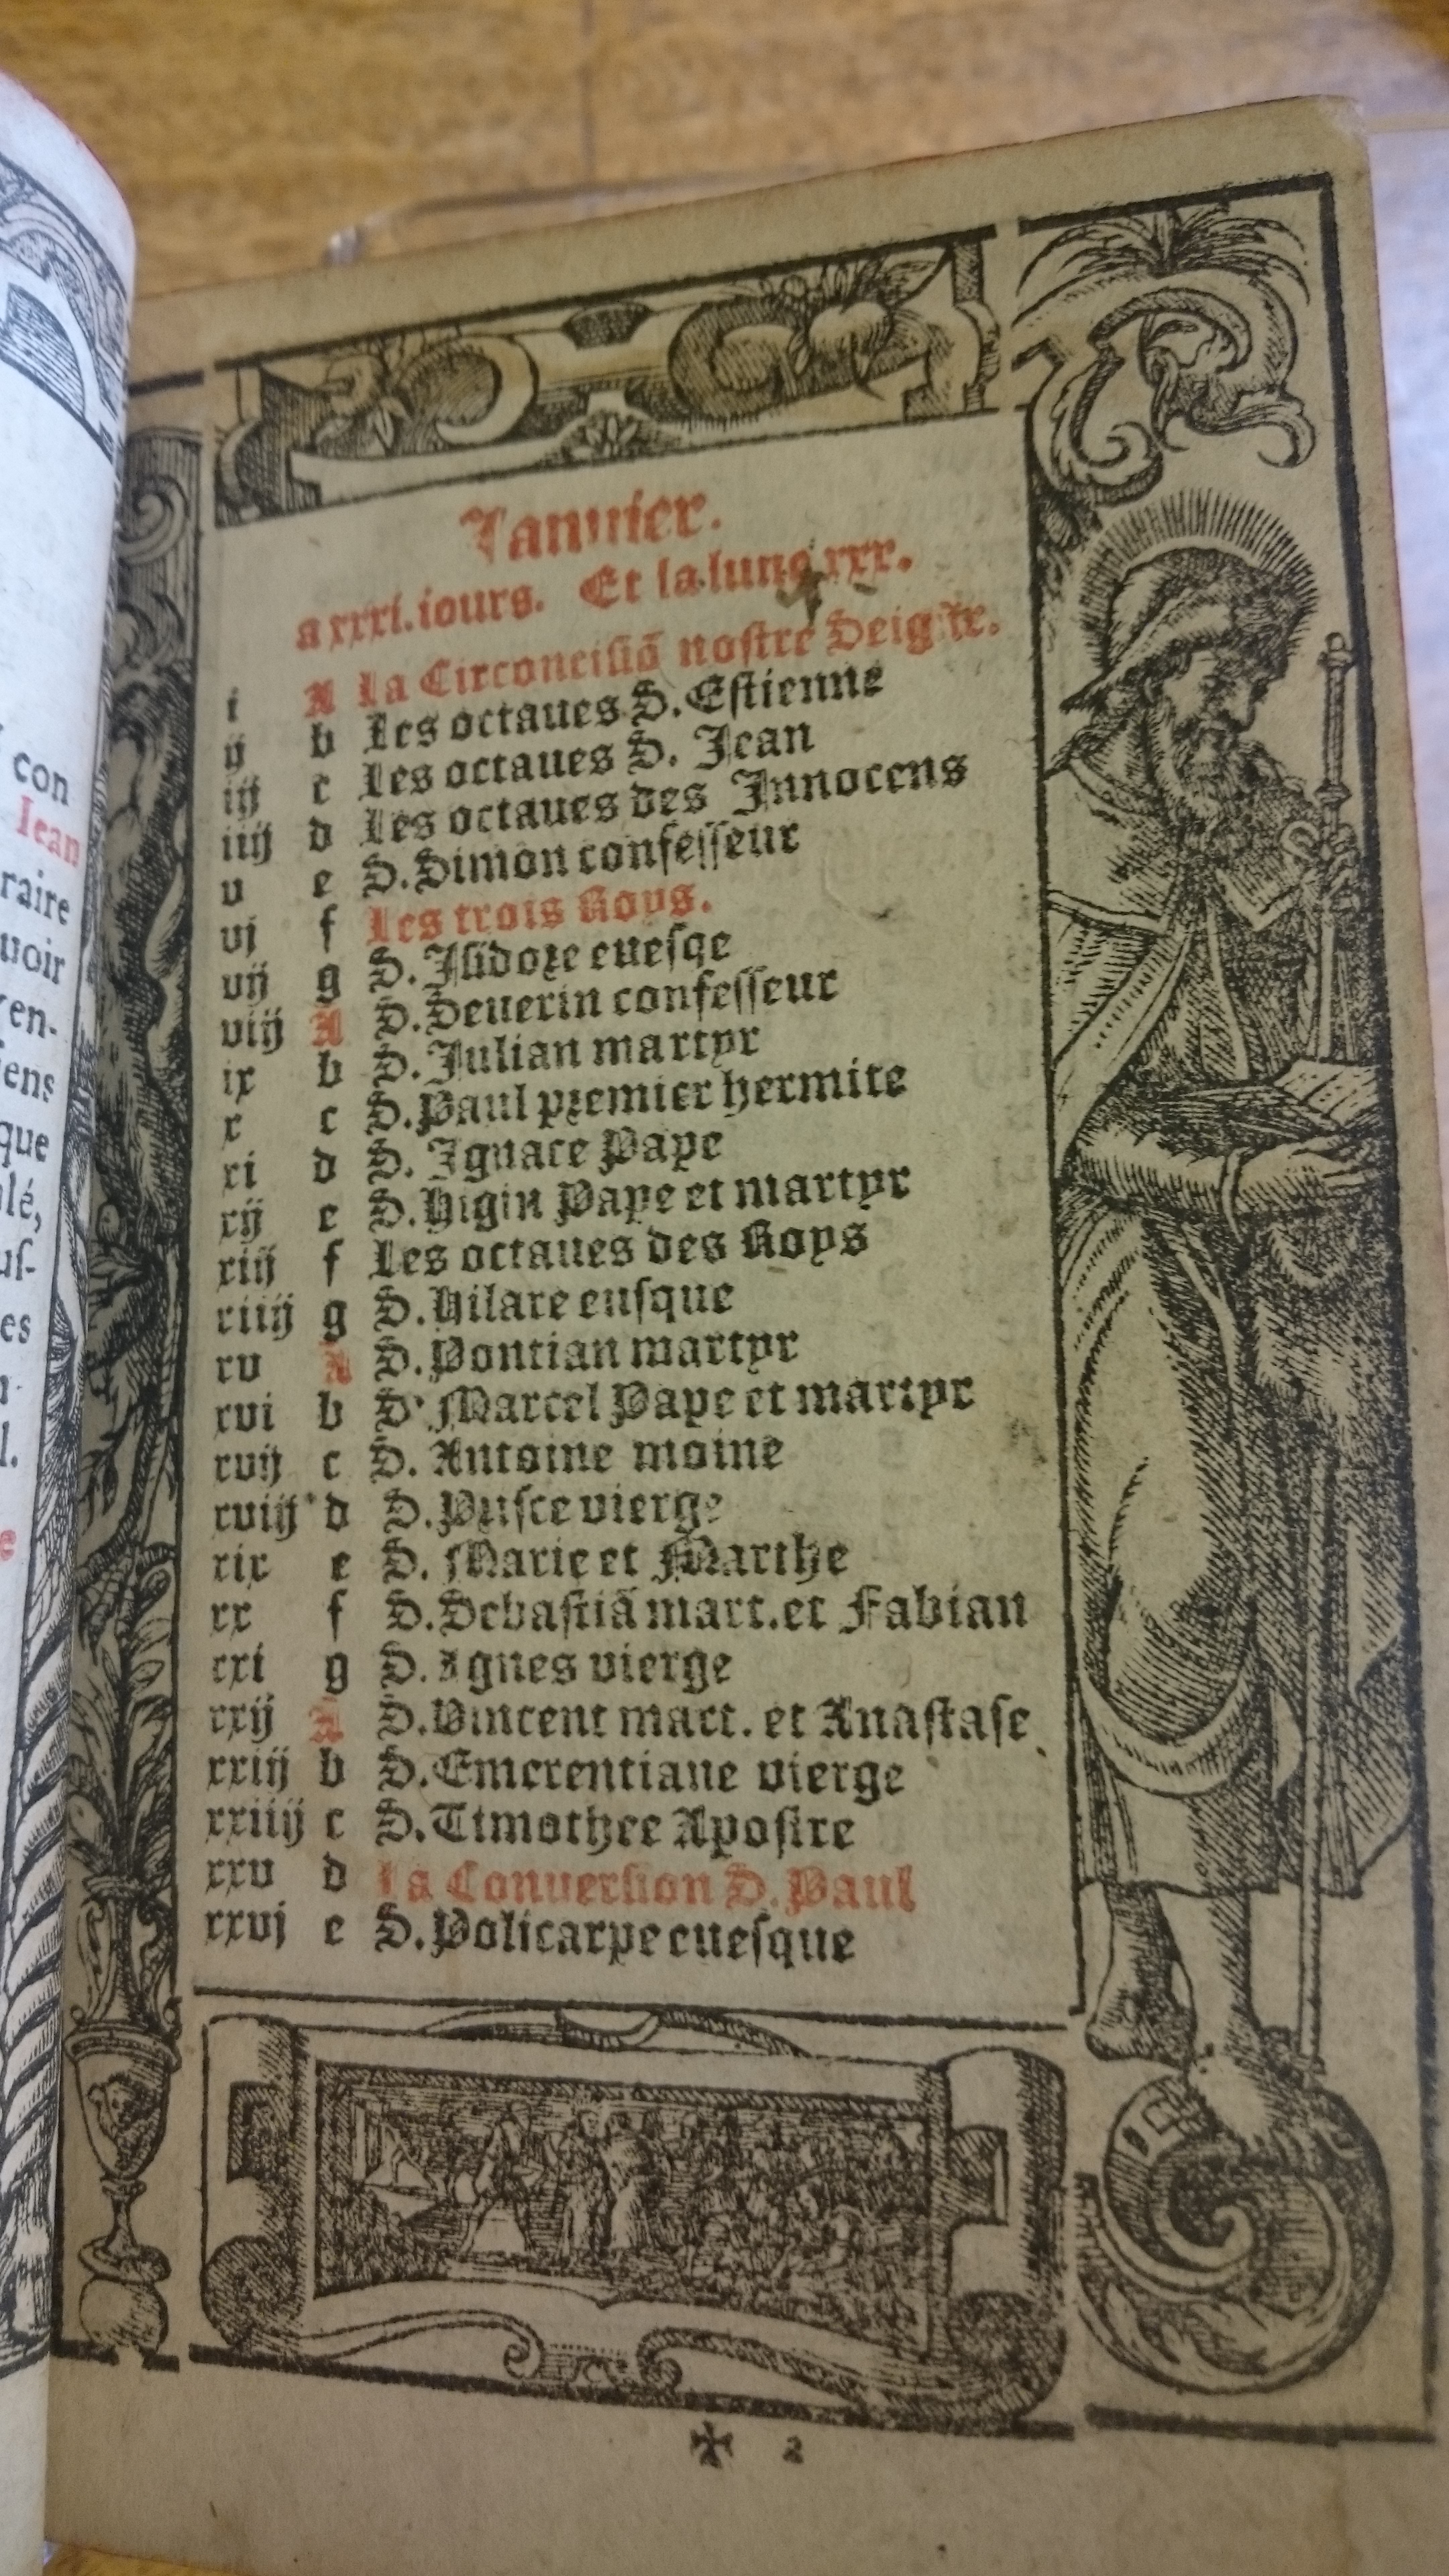 con
Iean
raire
uoir
en-
ens
que
lé,
es
l.
Ianuier.
a xxxi. iours. Et la lune xxx.
i A La Circoncisiõ nostre Seigñr.
ij b Les octaues S. Estienne
iij c Les octaues S. Jean
iiij d Les octaues des Innocens
v e S. Simon confesseur
vj f Les trois Roys.
vij g S. Isidore euesqe
viij A S. Seuerin confesseur
ix b S. Julian martyr
x c S. Paul premier hermite
xi d S. Ignace Pape
xij e S. Higin Pape et martyr
xiij f Les octaues des Roys
xiiij g S. Hilare eusque
xv A S. Pontian martyr
xvi b S' Marcel Pape et martyr
xvij c S. Antoine moine
xviij d S. Prisce vierge
xix e S. Marie et Marthe
xx f S. Sebastiã mart. et Fabian
xxi g S. Agnes vierge
xxij A S. Vincent mart. et Anastase
xxiij b S. Emerentiane vierge
xxiiij c S. Timothee Apostre
xxv d La Conuersion S. Paul
xxvj e S. Policarpe euesque
✠ 2